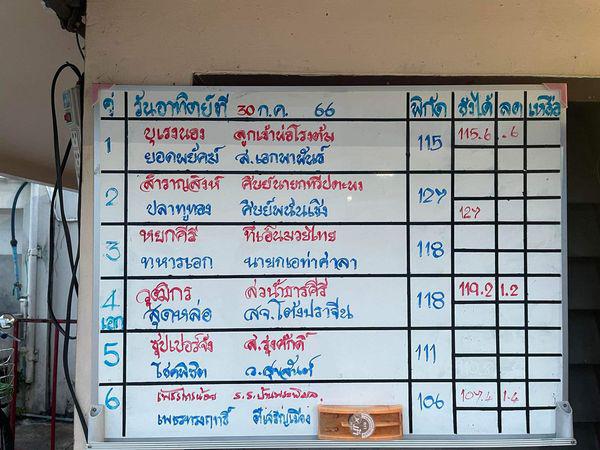 คู่ วันอาทิตย์ที่ 30 ก.ค. 66 พิกัด ชั่งได้ ลด เหลือ
1 บุเรงนอง ลูกเจ้าพ่อโรงต้ม 115 115.6 .6
ยอดพยัคฆ์ ส.เอกพาพันธ์
2 สำราญสิงห์ ศิษย์นายกทวีปตะพง 127
ปลาทูทอง ศิษย์พนันเชิง 127
3 หยกศิริ ทีเอ็นมวยไทย 118
ทหารเอก นายกเอท่าศาลา
4 วุฒิกร ส่วนำธารคีรี 118 119.2 1.2
เอก สุดหล่อ สจ.โต้งปราจีน
5 ซุปเปอร์จัง ส.รุ่งศักดิ์ 111
โชคพิชิต
6 เพชรไทรน้อย ร.ร.บ้านพระพิมล 106 107.4 1.4
ตี๋เจริญเมือง